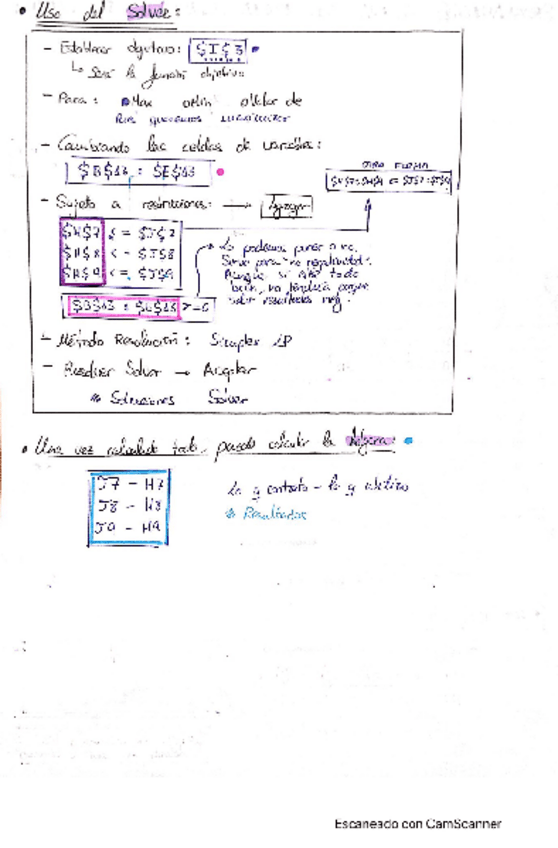 • Uso del Solver:
- Establecer objetivo: $I$3
↳ Será la función objetivo
- Para: Max Min Valor de
Aquí queremos maximizar
- Cambiando las celdas de variables:
$B$13 : $E$13
OTRA FORMA
$H$7:$H$9 <= $J$7:$J$9
- Sujeto a restricciones: → Agregar
$H$7 <= $J$7
$H$8 <= $J$8
$H$9 <= $J$9
Lo podemos poner o no.
Sirve para "no negatividad".
Aunque si todo
bien, no tendría porque
salir resultados neg.
$B$13 : $E$13 >= 0
- Método Resolución: Simplex LP
- Resolver Solver → Aceptar
* Soluciones Solver
• Una vez calculado todo, puedo calcular la holgura:
J7 - H7
J8 - H8
J9 - H9
Lo q - lo q
* Resultados
Escaneado con CamScanner